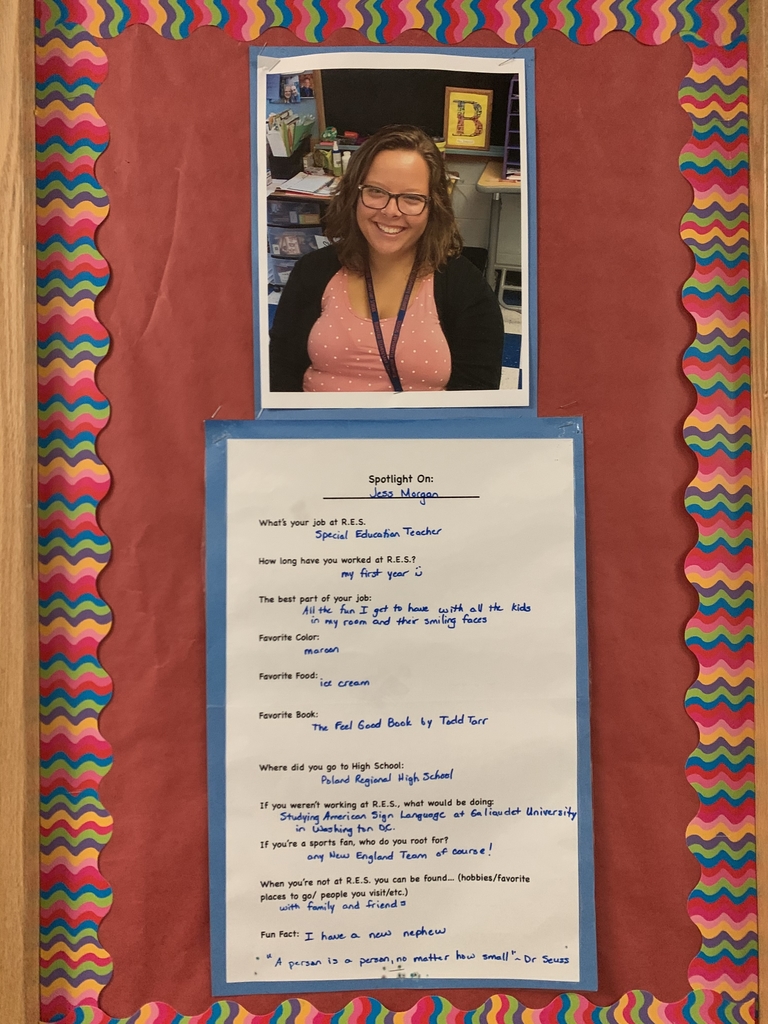 B
Spotlight On:
Jess Morgan
What's your job at R.E.S.
Special Education Teacher
How long have you worked at R.E.S.?
my first year
The best part of your job:
All the fun I get to have with all the kids
in my room and their smiling faces
Favorite Color:
maroon
Favorite Food:
ice cream
Favorite Book:
The Feel Good Book by Todd Tarr
Where did you go to High School:
Poland Regional High School
If you weren't working at R.E.S., what would be doing:
Studying American Sign Language at Galiaudet University
in Washington DC.
If you're a sports fan, who do you root for?
any New England Team of course!
When you're not at R.E.S. you can be found... (hobbies/favorite
places to go/ people you visit/etc.)
with family and friends
Fun Fact: I have a new nephew
"A person is a person, no matter how small" ~ Dr Seuss